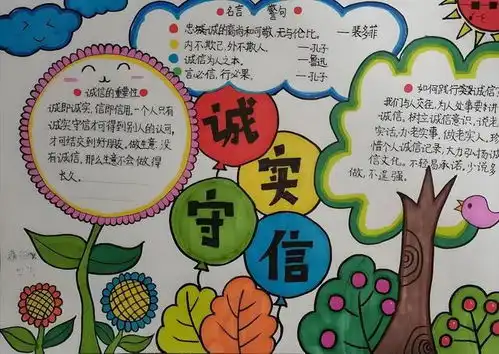 名言 警句
忠诚的高尚和可敬,无与伦比。 —裴多菲
内不欺己,外不欺人。 —孔子
诚信为人之本。 —鲁迅
言必信,行必果。 —孔子
诚信的重要性
诚即诚实,信即信用,一个人只有
诚实守信才可得到别人的认同,
才可结交到好朋友,做生意,没
有诚信,那么生意不会做得
长久。
诚
实
守
信
如何践行诚信
我们与人交往,为人处事要讲
诚信,树立诚信意识,说老
实话,办老实事,做老实人,珍
惜个人诚信记录,大力弘扬诚
信文化。不轻易承诺,少说多
做,不逞强。